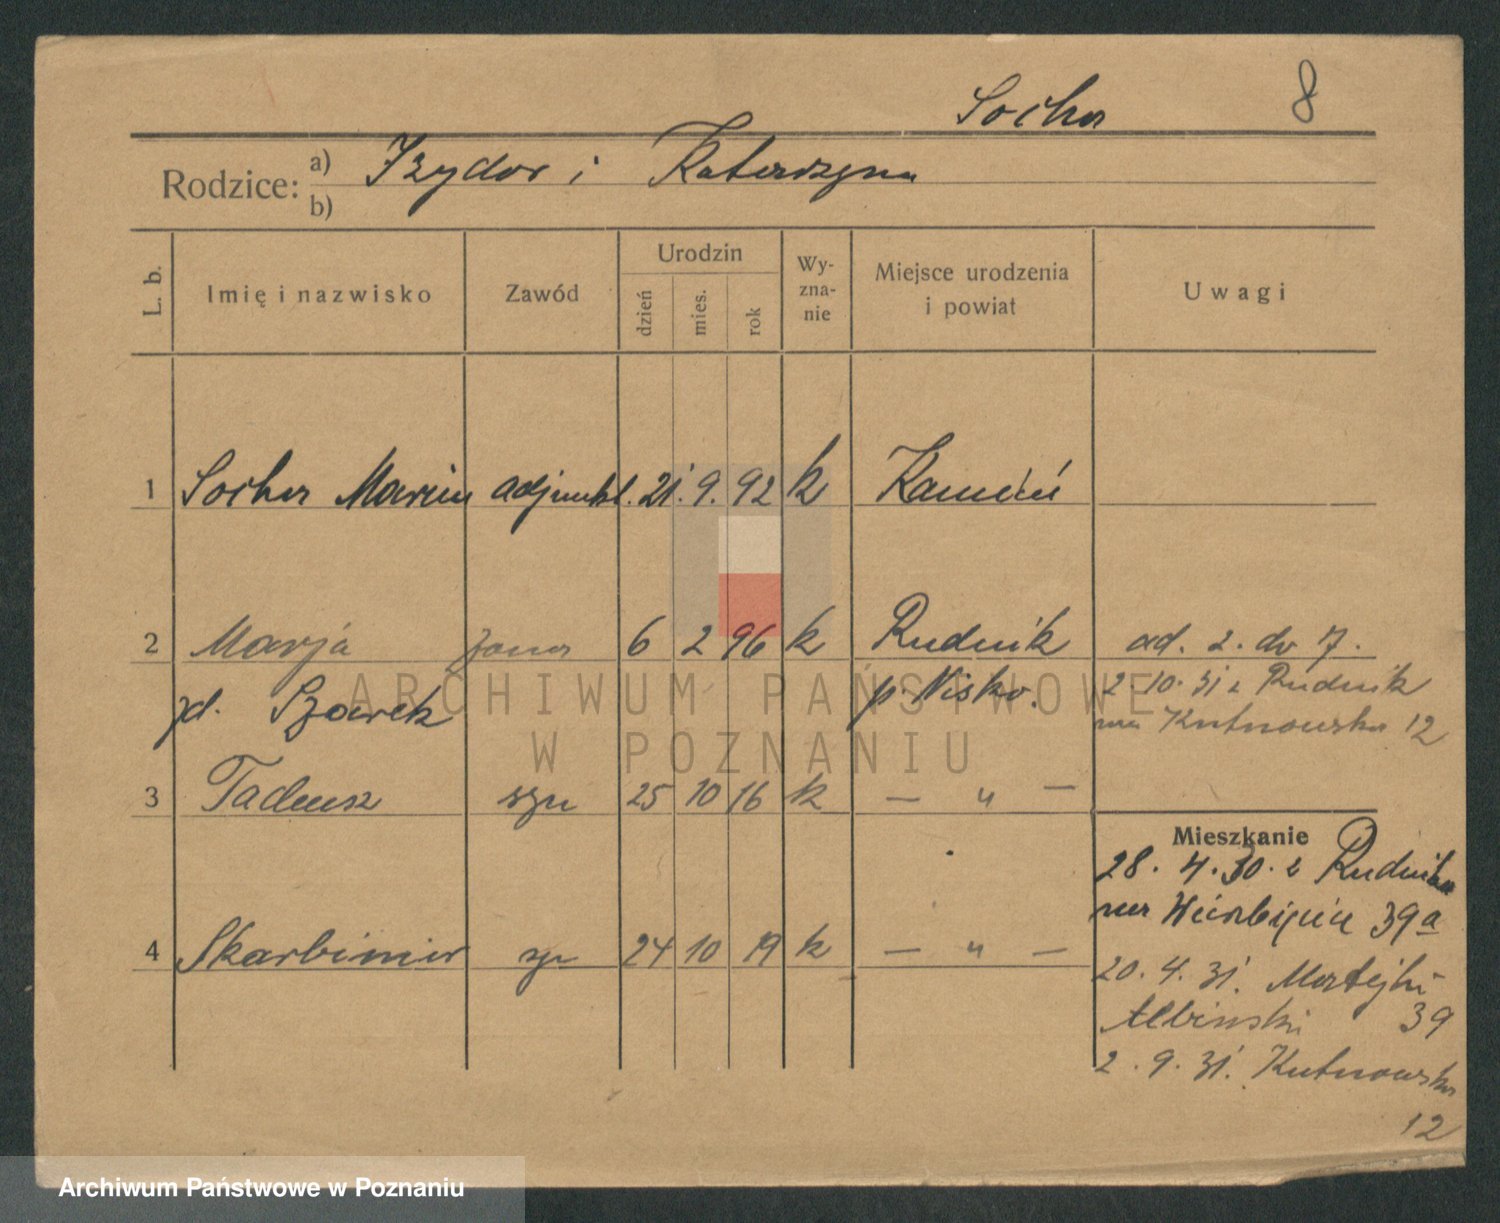 Socha 8
Rodzice: a) Izydor i Katarzyna
b)
L. b. Imię i nazwisko Zawód Urodzin dzień mies. rok Wy-zna-nie Miejsce urodzenia i powiat Uwagi
1 Socha Marcin adjunkt. 21. 9. 92 k Kamień
2 Marja żona 6 2 96 k Rudnik ad. 2. do 7.
zd. p. Nisko. 2 10. 31 z Rudnik
na Kutnowska 12
3 Tadeusz syn 25 10 16 k — " —
Mieszkanie
28. 4. 30. z Rudnika
na 39a
4 Skarbimir syn 24 10 19 k — " —
20. 4. 31. Matejki
39
2. 9. 31. Kutnowska
12
ARCHIWUM PAŃSTWOWE
W POZNANIU
Archiwum Państwowe w Poznaniu